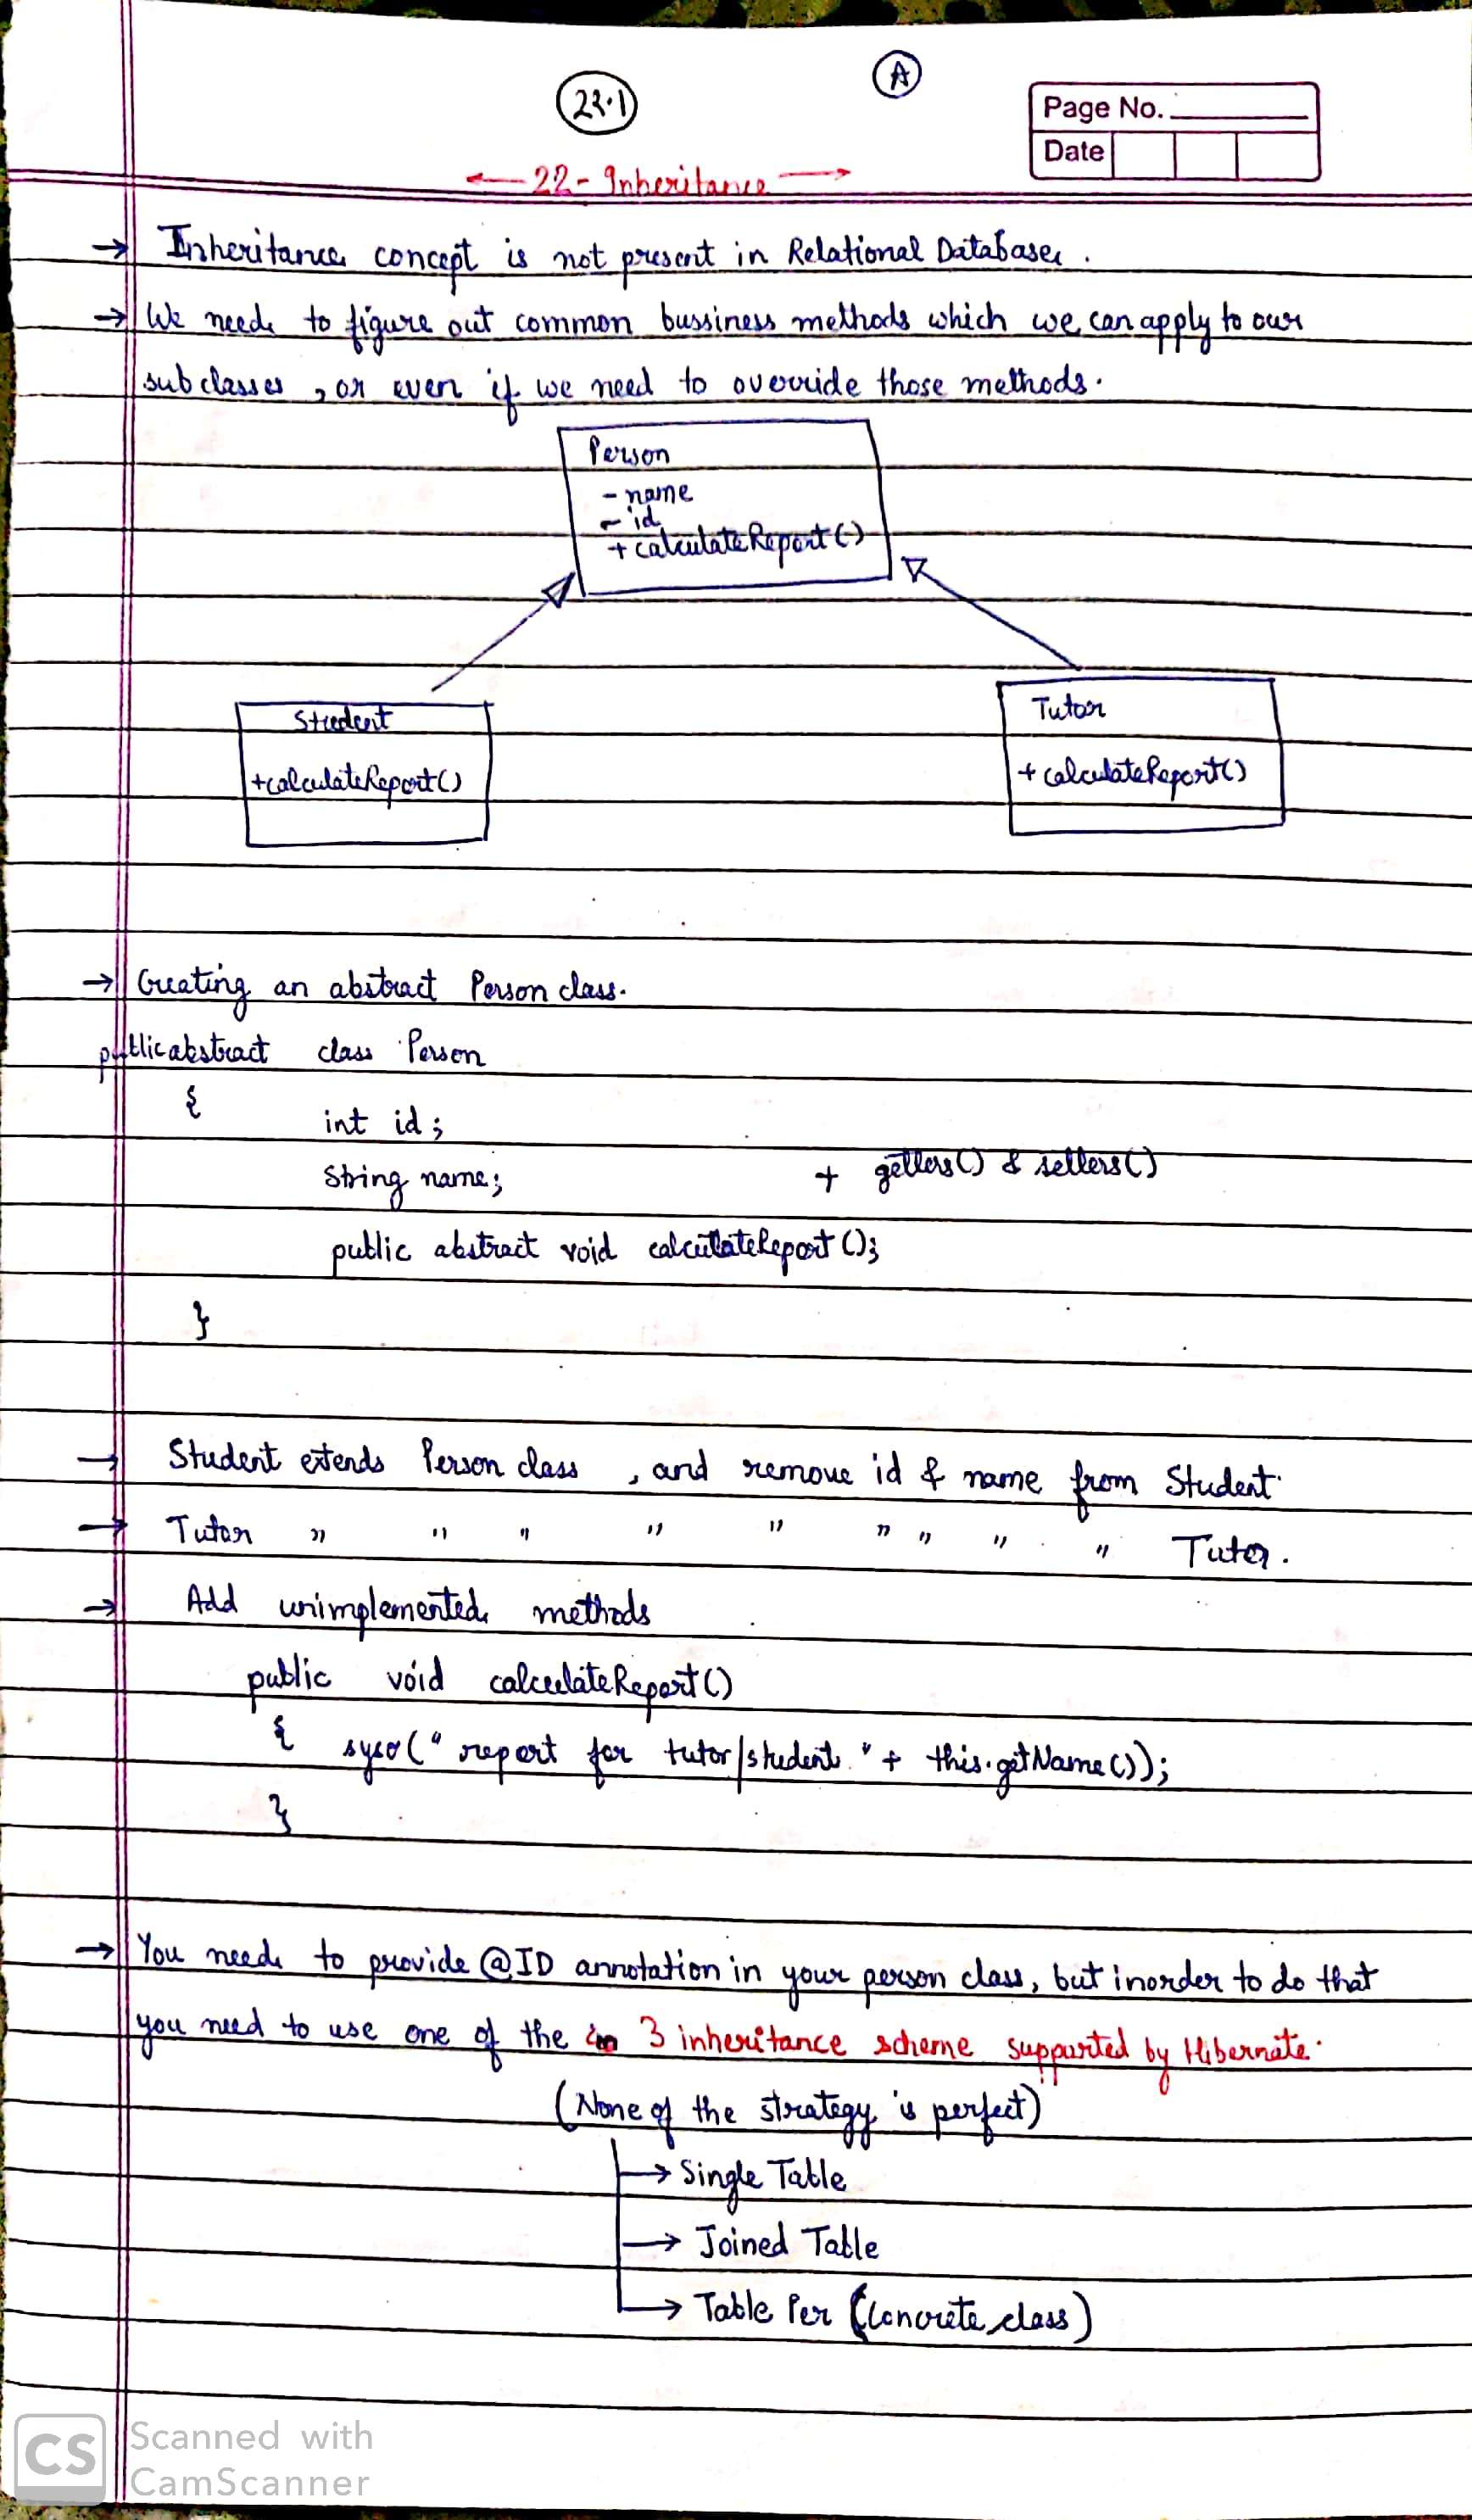 22.1
A
Page No.
Date
22 - Inheritance
→ Inheritance concept is not present in Relational Database.
→ We need to figure out common bussiness methods which we can apply to our
subclasses, or even if we need to override those methods.
Person
- name
- id
+ calculateReport()
Student
+calculateReport()
Tutor
+ calculateReport()
→ Creating an abstract Person class.
public abstract class Person
{
int id;
String name; + getters() & setters()
public abstract void calculateReport();
}
→ Student extends Person class, and remove id & name from Student
→ Tutor " " " " " " " " " Tutor.
→ Add unimplemented methods
public void calculateReport()
{ syso(" report for tutor/student " + this.getName());
}
→ You need to provide @ID annotation in your person class, but inorder to do that
you need to use one of the 3 inheritance scheme supported by Hibernate.
(None of the strategy is perfect)
→ Single Table
→ Joined Table
→ Table Per (Concrete class)
CS Scanned with
CamScanner